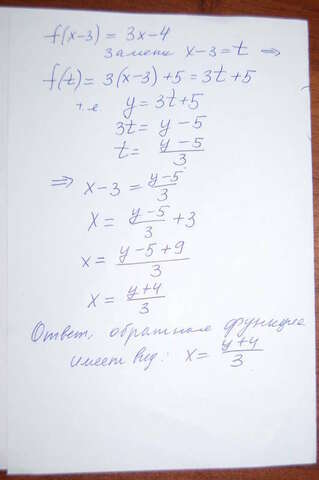 f(x-3) = 3x-4
Замена x-3=t ⇒
f(t) = 3(x-3)+5 = 3t+5
т.е y = 3t+5
3t = y-5
t = (y-5)/3
⇒ x-3 = (y-5)/3
x = (y-5)/3 + 3
x = (y-5+9)/3
x = (y+4)/3
Ответ, обратная функция
имеет вид: x = (y+4)/3